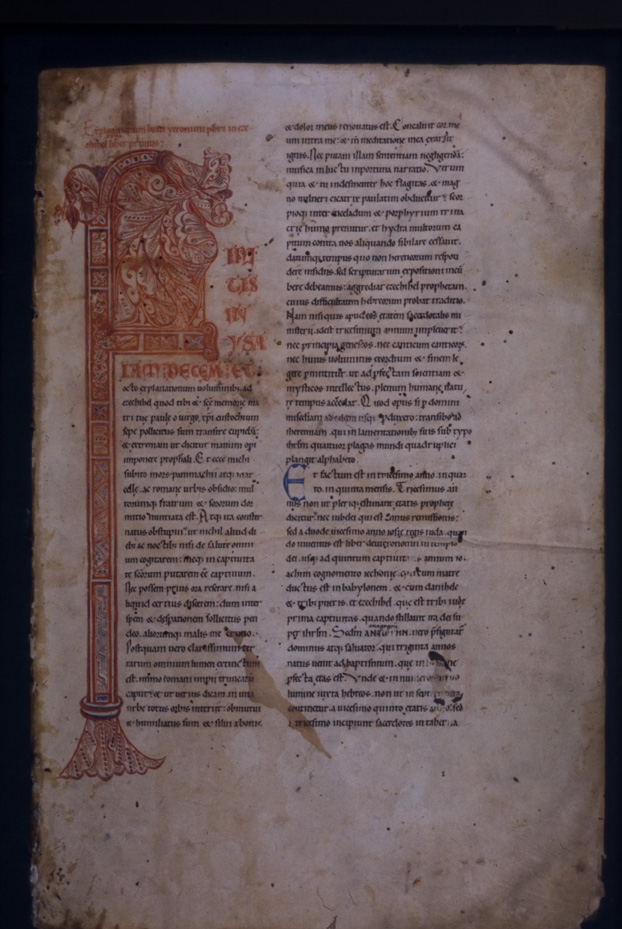 Explanationum beati yeronimi pbri in eze
chihel liber primus:
FINI
TIS
IN
YSA
IAM DECEM. ET
octo explanationum uoluminibus. ad
ezechihel quod tibi & sce memorie ma
tri tue paule o uirgo xpi eustochium
sepe pollicitus sum transire cupieba:
& extremam ut dicitur manum opi
imponere prophali. Et ecce michi
subito mors pammachii atq; mar
celle. ac romane urbis obsidio: mul
torumq; fratrum & sororum dor
mitio nuntiata est. Atq; ita conster
natus obstupui: ut nichil aliud di
ebus ac noctibus nisi de salute omni
um cogitarem: meq; in captiuita
te scorum putarem ee captiuum.
Nec possem prius ora reserare. nisi a
liquid certius discerem: dum inter
spem & desperationem sollicitus pen
deo. aliorumq; malis me
Postquam uero clarissimum ter
rarum omnium lumen extinctum
est. immo romani imperii truncatu
caput: & ut uerius dicam in una
urbe totus orbis interiit: obmutui
& humiliatus sum & silui a bonis.
& dolor meus renouatus est. Concaluit cor me
um intra me: & in meditatione mea exardsit
ignis. Nec putaui illam sententiam negligenda:
musica in luctu inportuna narratio. Verum
quia & tu indesinenter hoc flagitas. & mag
no uulneri cicatrix paulatim obducitur: scor
pioq; inter enceladum & porphyrium trina
crie humo premitur. & hydra multorum ca
pitum contra nos aliquando sibilare cessauit.
datumq; tempus quo non hereticorum respon
dere insidiis. sed scripturarum expositioni incu
bere debeamus: aggrediar ezechihel prophetam.
cuius difficultatem hebreorum probat traditio.
Nam nisi quis apud eos etatem sacerdotalis mi
nisterii. idest tricesimum annum impleuerit:
nec principia geneseos. nec canticum canticorum.
nec huius uoluminis exordium & finem le
gere permittitur. ut ad perfectam scientiam &
mysticos intellectus. plenum humane nature
tempus accedat. Quod opus si domini
misericordiam ad calcem usq; perduxero: transibo ad
iheremiam. qui in lamentationibus suis sub typo
ihrlm quattuor plagas mundi quadruplici
plangit alphabeto.
Et factum est in tricesimo anno. in quar
to. in quinta mensis. Tricesimus an
nus non ut pleriq; estimant etatis prophete
dicitur: nec iubelei qui est annus remissionis:
sed a duodeuicesimo anno iosie regis iuda. quan
do inuentus est liber deuteronomii in templo
dei. usq; ad quintum captiuitatis annum io
achim cognomento iechonie. quum matre
ductus est in babylonem. & cum danihele
& tribus pueris. & ezechihel. que est tribus iude
prima captiuitas. quando stillauit ira dei su
per ihrlm. Secundum uero prefigurat
dominus atq; saluator. qui triginta annos
natus uenit ad baptismum. que in
perfecta etas est. Vnde & in numerorum
lumine iuxta hebreos. non ut in sept
continetur a uicesimo quinto etatis anno. sed
a tricesimo incipiunt sacerdotes in taberna